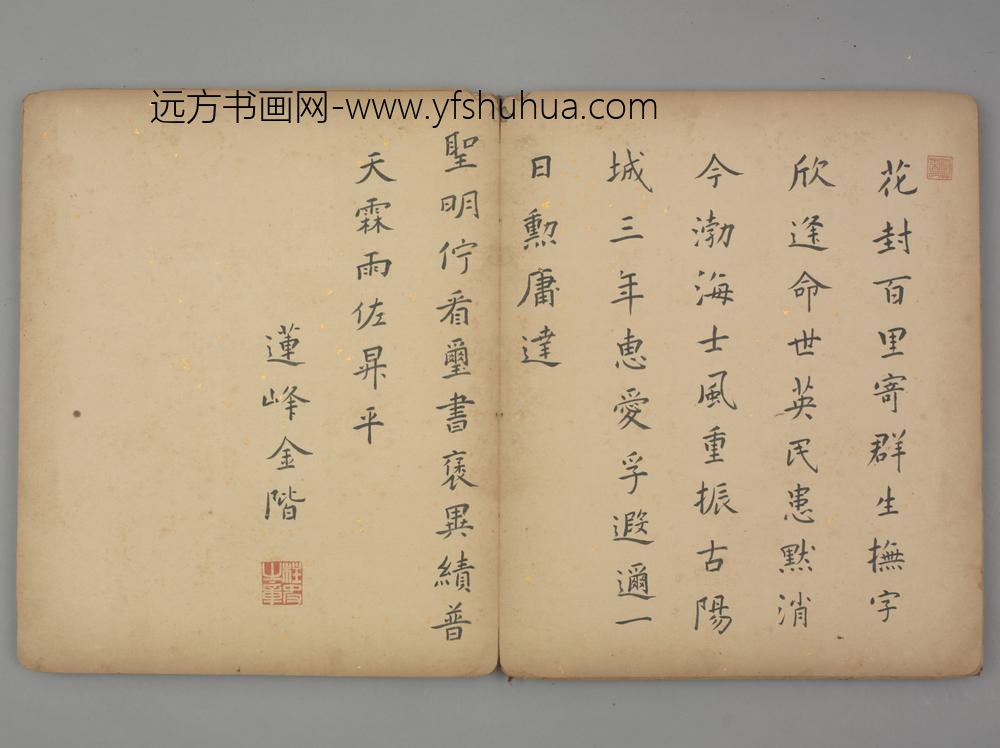 远方书画网-www.yfshuhua.com
花封百里寄群生撫字
欣逢命世英民患默消
今渤海士風重振古陽
城三年惠愛孚遐邇一
日勲庸達
聖明佇看璽書褒異績普
天霖雨佐昇平
蓮峰金階